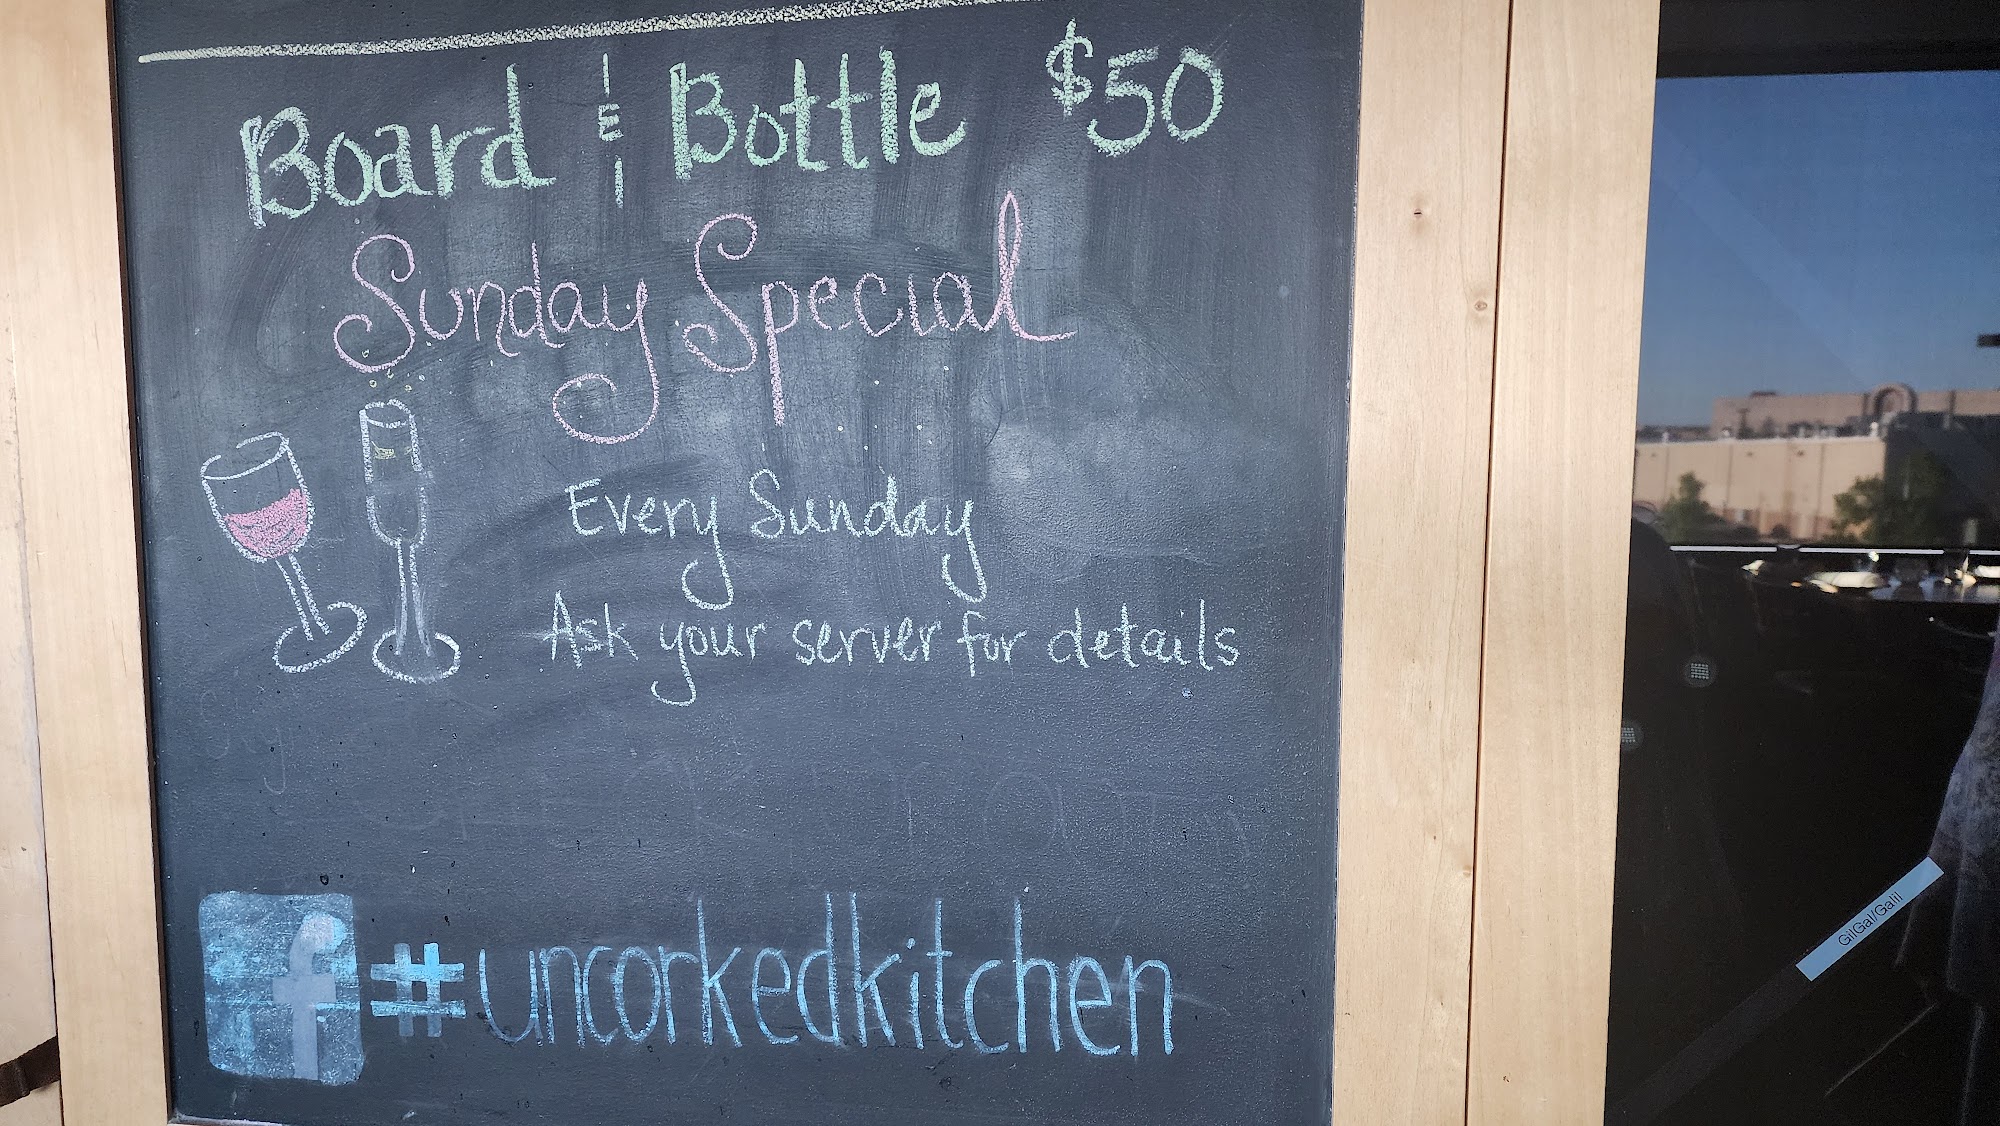 Board & Bottle $50
Sunday Special
Every Sunday
Ask your server for details
f #uncorkedkitchen
GilGal/Galil